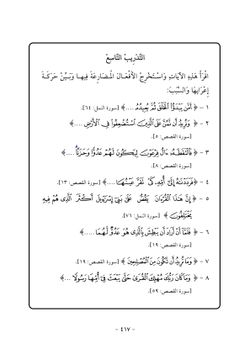 التدريب التاسع
اقرأ هذه الآيات واستخرج الأفعال المضارعة فيها وبين حركة
إعرابها والسبب:
١ - ﴿ أمن يبدؤا الخلق ثم يعيده ....﴾ [سورة النمل: ٦٤].
٢ - ﴿ ونريد أن نمن على الذين استضعفوا في الأرض ....﴾
[سورة القصص: ٥].
٣ - ﴿ فالتقطه ءال فرعون ليكون لهم عدوا وحزنا ....﴾
[سورة القصص: ٨].
٤ - ﴿ فرددناه إلى أمه كي تقر عينها ....﴾ [سورة القصص: ١٣].
٥ - ﴿ إن هذا القرءان يقص على بني إسرءيل أكثر الذي هم فيه
يختلفون ﴾ [سورة النمل: ٧٦].
٦ - ﴿ فلما أن أراد أن يبطش بالذي هو عدو لهما ....﴾
[سورة القصص: ١٩].
٧ - ﴿ وما تريد أن تكون من المصلحين ﴾ [سورة القصص: ١٩].
٨ - ﴿ وما كان ربك مهلك القرى حتى يبعث في أمها رسولا ...﴾
[سورة القصص: ٥٩].
- ٤١٧ -